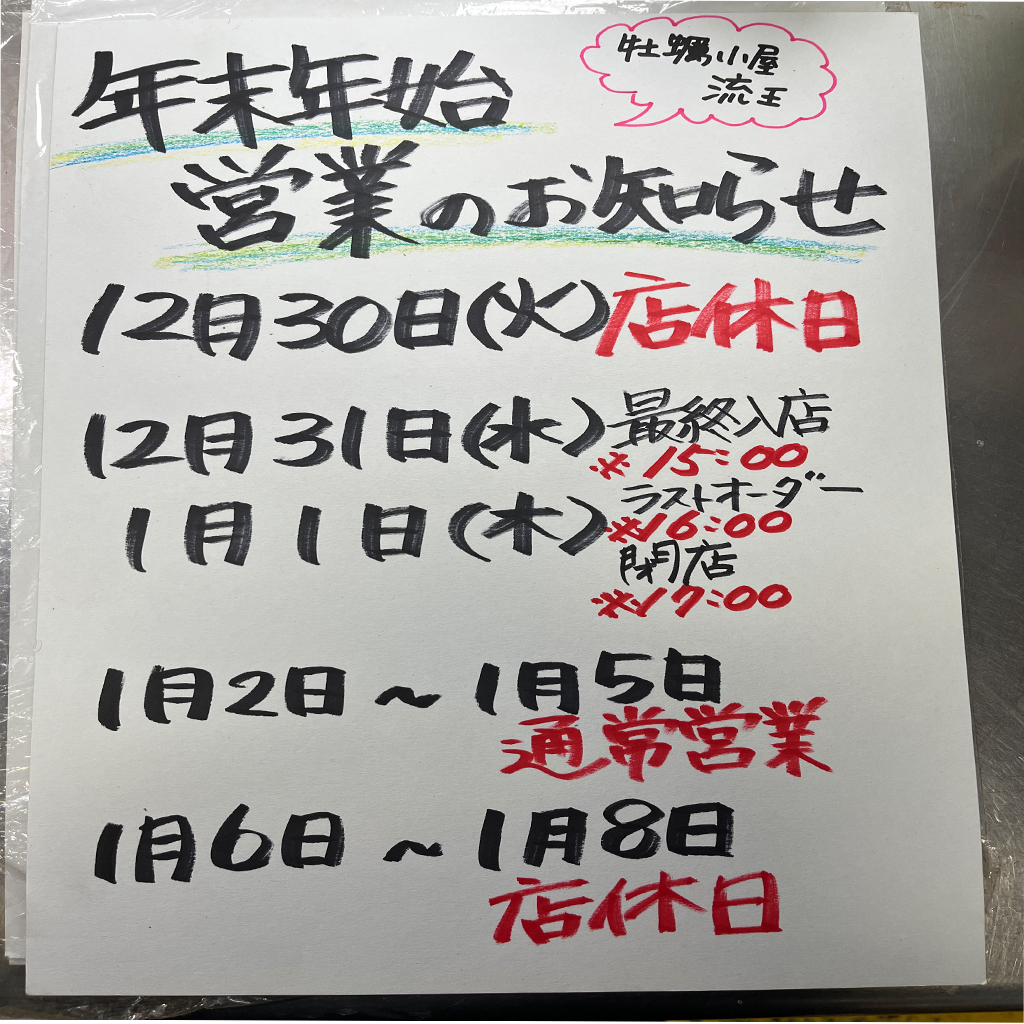 牡蠣小屋
流王
年末年始
営業のお知らせ
12月30日(火)店休日
12月31日(水)最終入店
※15:00
ラストオーダー
1月1日(木)※16:00
閉店
※17:00
1月2日~1月5日
通常営業
1月6日~1月8日
店休日